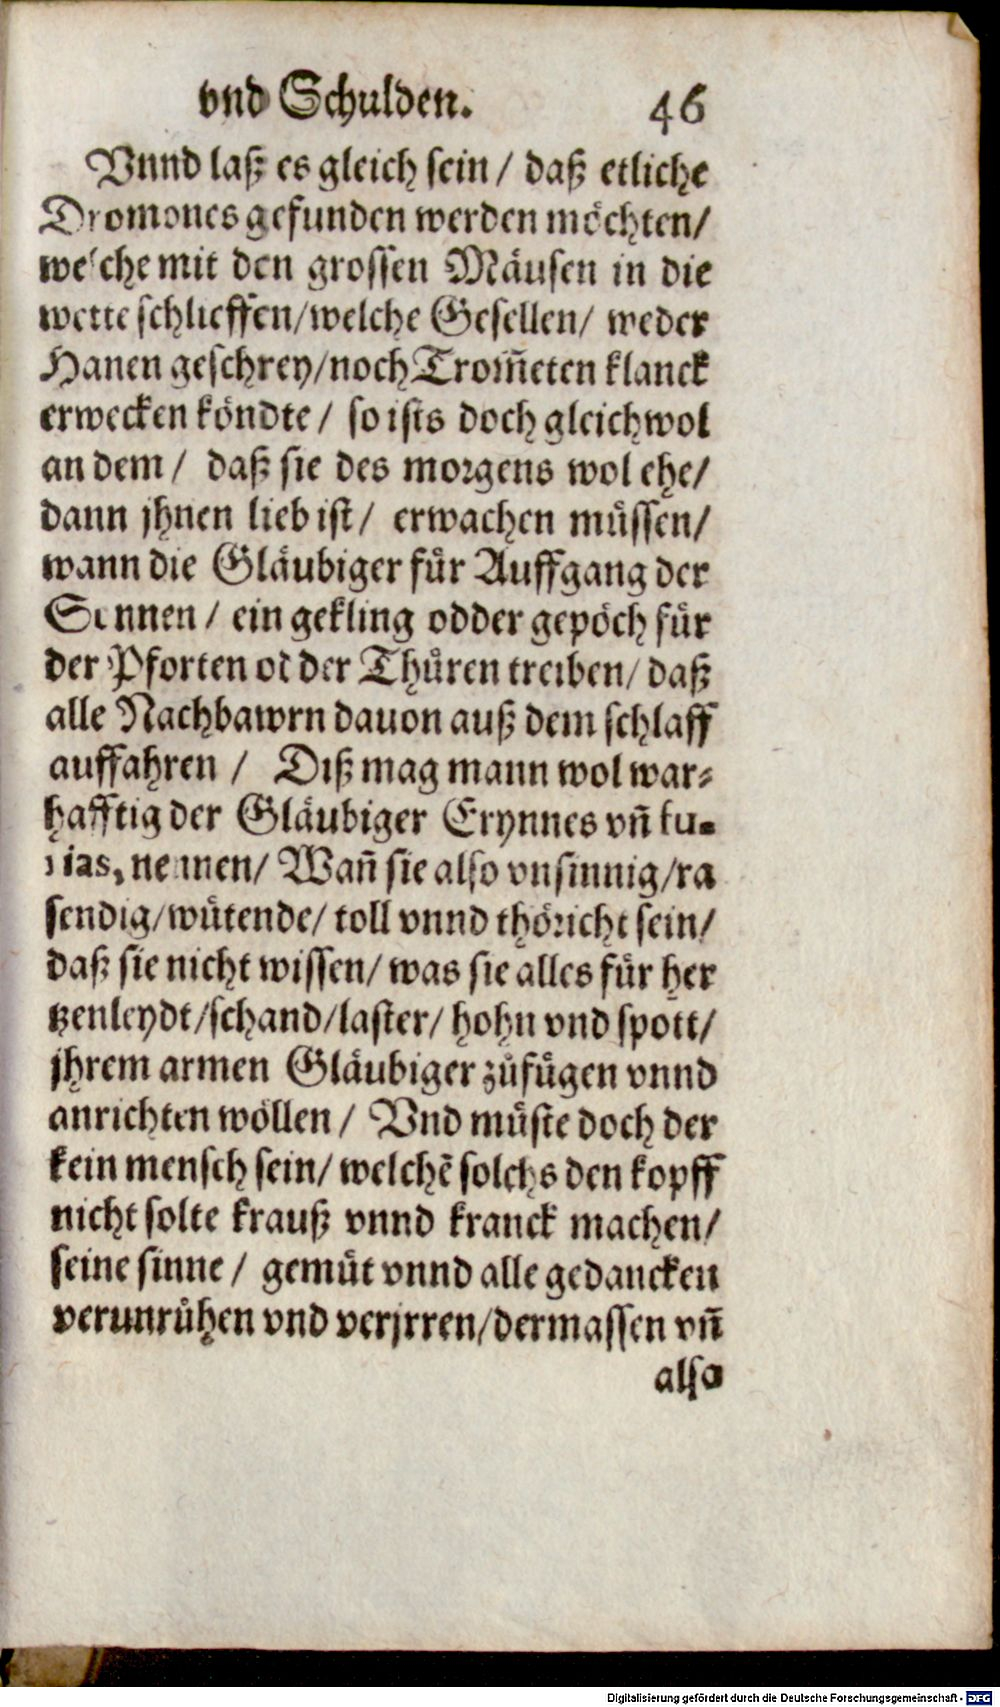 vnd Schulden. 46
Vnnd laß es gleich sein / daß etliche
Dromones gefunden werden möchten/
welche mit den grossen Mäusen in die
wette schlieffen/welche Gesellen/ weder
Hanen geschrey/noch Trom̃eten klanck
erwecken köndte / so ists doch gleichwol
an dem / daß sie des morgens wol ehe/
dann jhnen lieb ist / erwachen müssen/
wann die Gläubiger für Auffgang der
Sonnen / ein gekling odder gepöch für
der Pforten odder Thüren treiben/ daß
alle Nachbawrn dauon auß dem schlaff
auffahren / Diß mag mann wol war-
hafftig der Gläubiger Erynnes vñ fu-
rias, nennen/ Wañ sie also vnsinnig/ra
sendig/wütende/ toll vnnd thöricht sein/
daß sie nicht wissen/ was sie alles für her
tzenleydt/schand/laster/ hohn vnd spott/
jhrem armen Gläubiger zůfügen vnnd
anrichten wöllen / Vnd müste doch der
kein mensch sein/ welchẽ solchs den kopff
nicht solte krauß vnnd kranck machen/
seine sinne / gemüt vnnd alle gedancken
verunrühen vnd verjrren/dermassen vñ
also
Digitalisierung gefördert durch die Deutsche Forschungsgemeinschaft - DFG